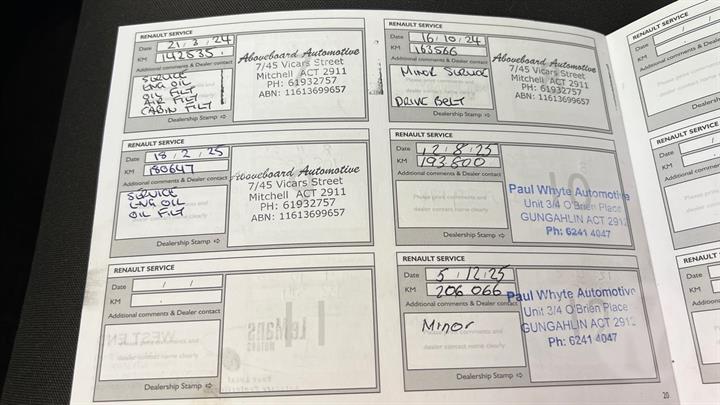 RENAULT SERVICE
Date 21 / 3 / 24
KM 142535
Additional comments & Dealer contact
SERVICE
ENG OIL
OIL FILT
AIR FILT
CABIN FILT
Aboveboard Automotive
7/45 Vicars Street
Mitchell ACT 2911
PH: 61932757
ABN: 11613699657
Dealership Stamp ⇨
RENAULT SERVICE
Date 16 / 10 / 24
KM 163566
Additional comments & Dealer contact
MINOR SERVICE
DRIVE BELT
Aboveboard Automotive
7/45 Vicars Street
Mitchell ACT 2911
PH: 61932757
ABN: 11613699657
Dealership Stamp ⇨
RENAULT SERVICE
Date 18 / 2 / 25
KM 180647
Additional comments & Dealer contact
SERVICE
ENG OIL
OIL FILT
Aboveboard Automotive
7/45 Vicars Street
Mitchell ACT 2911
PH: 61932757
ABN: 11613699657
Dealership Stamp ⇨
RENAULT SERVICE
Date 12 / 8 / 25
KM 193800
Additional comments & Dealer contact
Please print comments and
dealer contact name clearly
Paul Whyte Automotive
Unit 3/4 O'Brien Place
GUNGAHLIN ACT 2912
Ph: 6241 4047
Dealership Stamp ⇨
RENAULT SERVICE
Date / /
KM
Additional comments & Dealer contact
Please print comments and
dealer contact name clearly
Dealership Stamp ⇨
RENAULT SERVICE
Date 5 / 12 / 25
KM 206 066
Additional comments & Dealer contact
Minor
dealer contact name clearly
Paul Whyte Automotive
Unit 3/4 O'Brien Place
GUNGAHLIN ACT 2912
Ph: 6241 4047
Dealership Stamp ⇨
20
RENAULT
Date
KM
Additional
RENAULT SERV
Date
KM
Additional comm
RENAULT SE
Date
KM